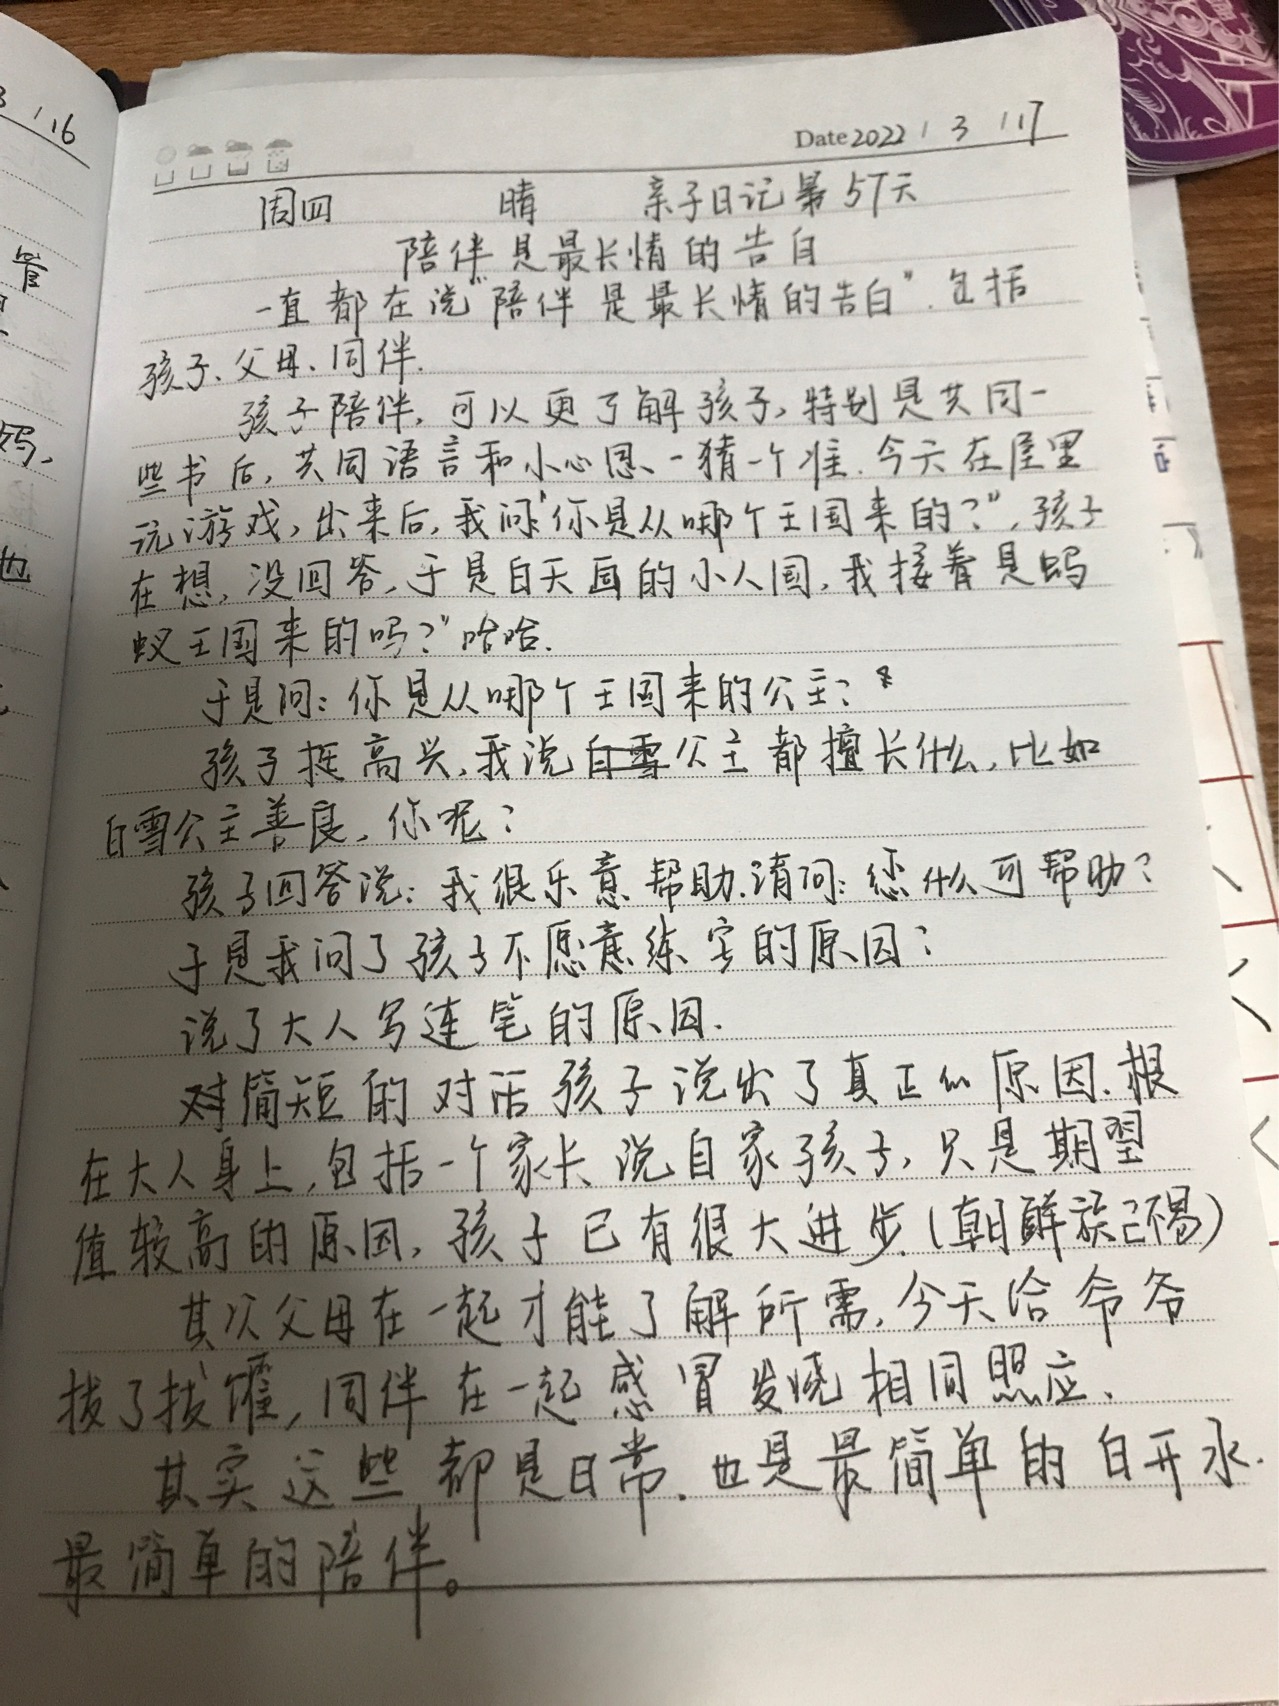 3 / 16
Date 2022 / 3 / 17
周四 晴 亲子日记第57天
陪伴是最长情的告白
一直都在说"陪伴是最长情的告白".包括
孩子、父母、同伴.
孩子陪伴,可以更了解孩子,特别是共同一
些书后,共同语言和小心思、一猜一个准.今天在屋里
玩游戏,出来后,我问"你是从哪个王国来的?",孩子
在想,没回答,于是白天画的小人国,我接着是蚂
蚁王国来的吗?"哈哈.
于是问:你是从哪个王国来的公主?
孩子挺高兴,我说白雪公主都擅长什么,比如
白雪公主善良,你呢?
孩子回答说:我很乐意帮助.请问:您什么可帮助?
于是我问了孩子不愿意练字的原因?
说了大人写连笔的原因.
对简短的对话孩子说出了真正的原因.根
在大人身上,包括一个家长说自家孩子,只是期望
值较高的原因,孩子已有很大进步.(朝鲜族)
其次父母在一起才能了解所需,今天给爷爷
拔了拔罐,同伴在一起感冒发烧相同照应.
其实这些都是日常.也是最简单的白开水.
最简单的陪伴。
管
妈,
也